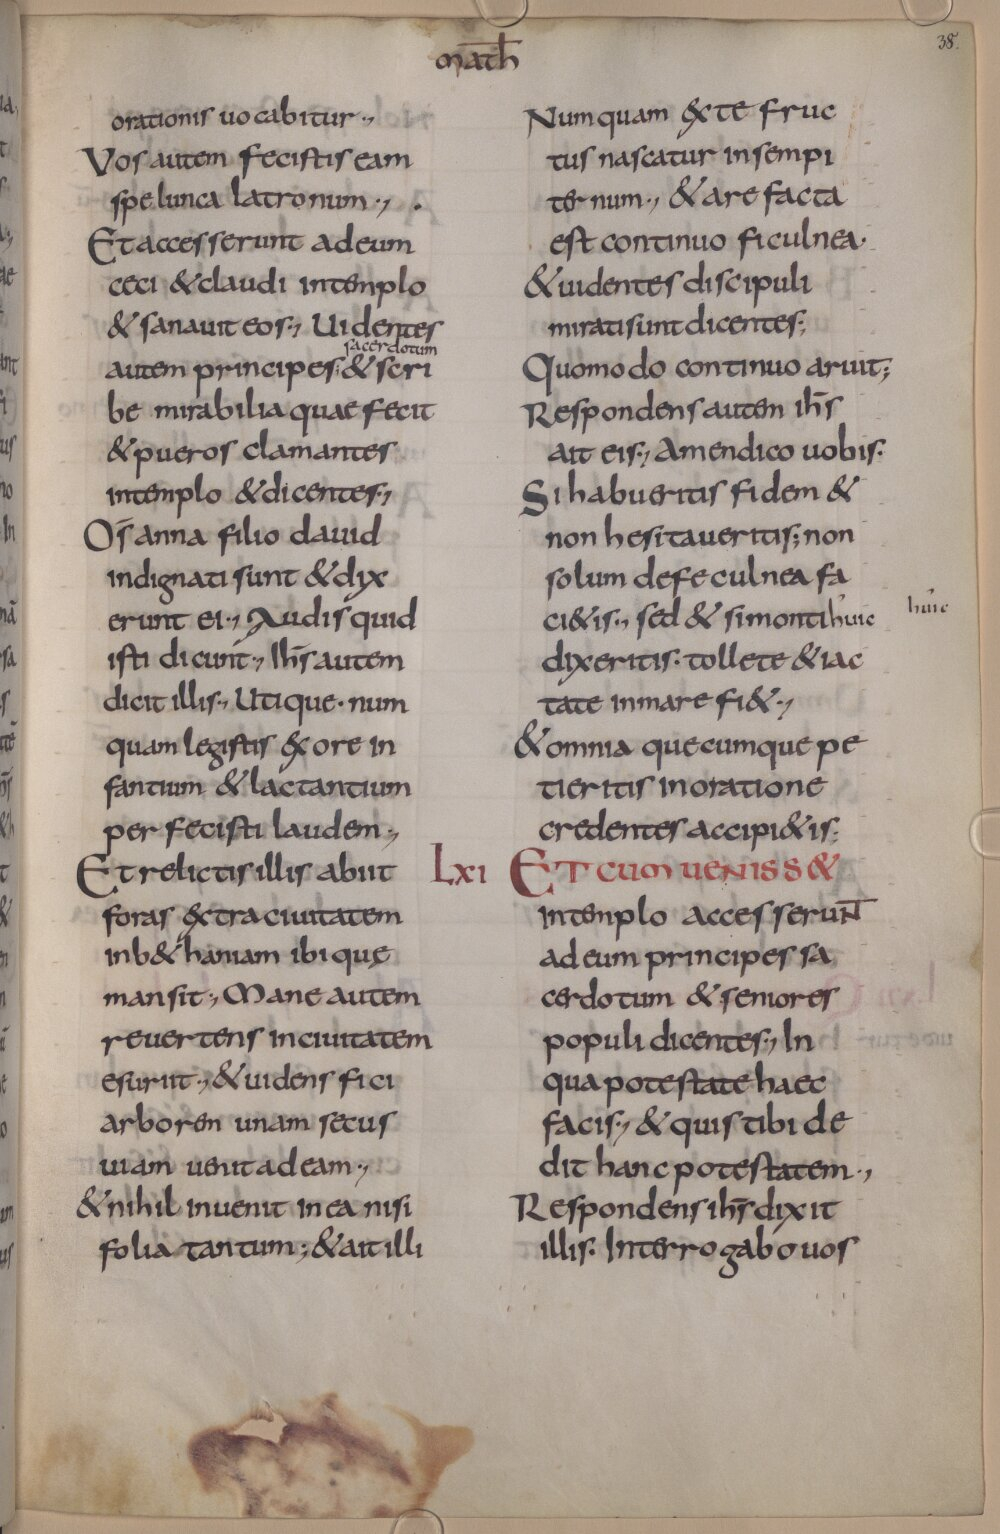 math
38.
orationis uocabitur.,
Vos autem fecistis eam
spelunca latronum., .
Et accesserunt ad eum
ceci & claudi in templo
& sanauit eos., Uidentes
sacerdotum
autem principes & scri
be mirabilia quae fecit
& pueros clamantes
in templo & dicentes.,
Os̄anna filio dauid
indignati sunt & dix
erunt ei., Audis quid
isti dicunt., Ih̄s autem
dicit illis., Utique. num
quam legistis ex ore in
fantium & lactantium
perfecisti laudem.,
Et relictis illis abiit
foras extra ciuitatem
in b&haniam ibi que
mansit., Mane autem
reuertens in ciuitatem
esuriit., & uidens fici
arborem unam secus
uiam uenit ad eam.,
& nihil inuenit in ea nisi
folia tantum; & ait illi
Numquam ex te fruc
tus nascatur in sempi
ternum., & arefacta
est continuo ficulnea.
& uidentes discipuli
mirati sunt dicentes;
Quomodo continuo aruit;
Respondens autem ih̄s
ait eis., Amen dico uobis.
Si habueritis fidem &
non hesitaueritis; non
solum de feculnea fa
ci&is., sed & si monti huic
huic
dixeritis. tollete & iac
tate in mare fi&.,
& omnia quecumque pe
tieritis in oratione
credentes accipi&is.
Lxi ET CUM UENISS&
in templo accesserun̄t
ad eum principes sa
cerdotum & seniores
populi dicentes., In
qua potestate haec
facis., & quis tibi de
dit hanc potestatem.,
Respondens ih̄s dixit
illis. Interrogabo uos